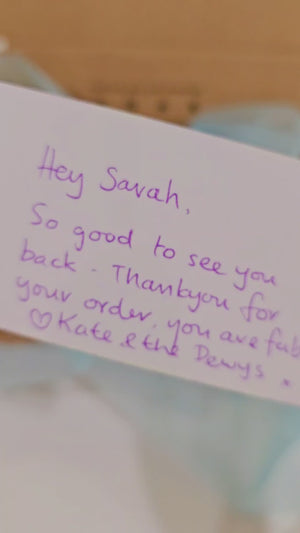 Hey Sarah,
So good to see you
back - Thankyou for
your order, you are fab
♡ Kate & the Dewys x